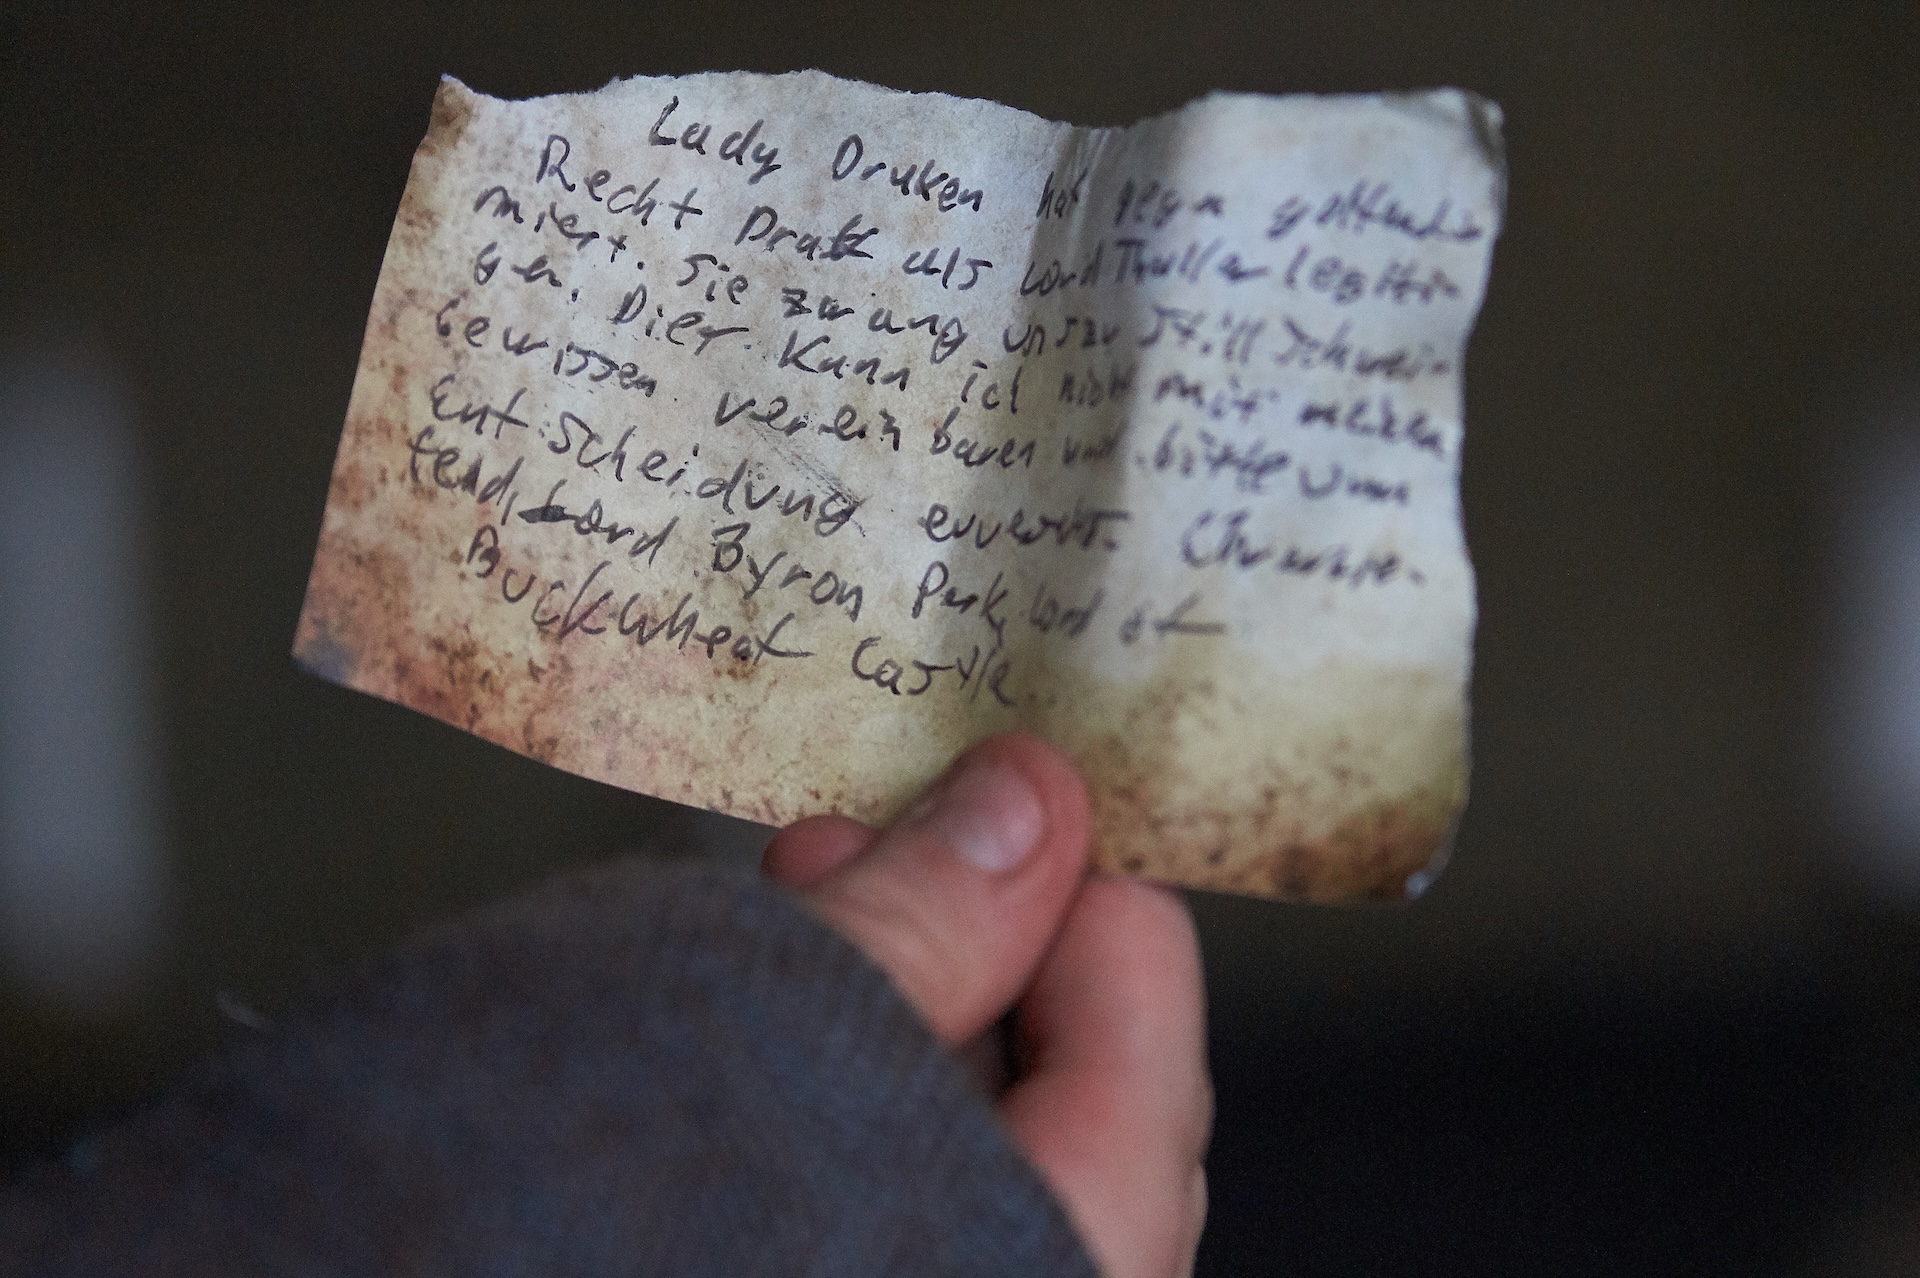 Lady Druken hat gegen göttliches
Recht Dratt als Lord Thuller legiti-
miert. Sie zwang uns zu Stillschwei-
gen. Dies kann ich nicht mit meinem
Gewissen vereinbaren und bitte um
Entscheidung eurerseits. Ehrerbie-
tend, Lord Byron Park, Lord of
Buckwheat Castle.